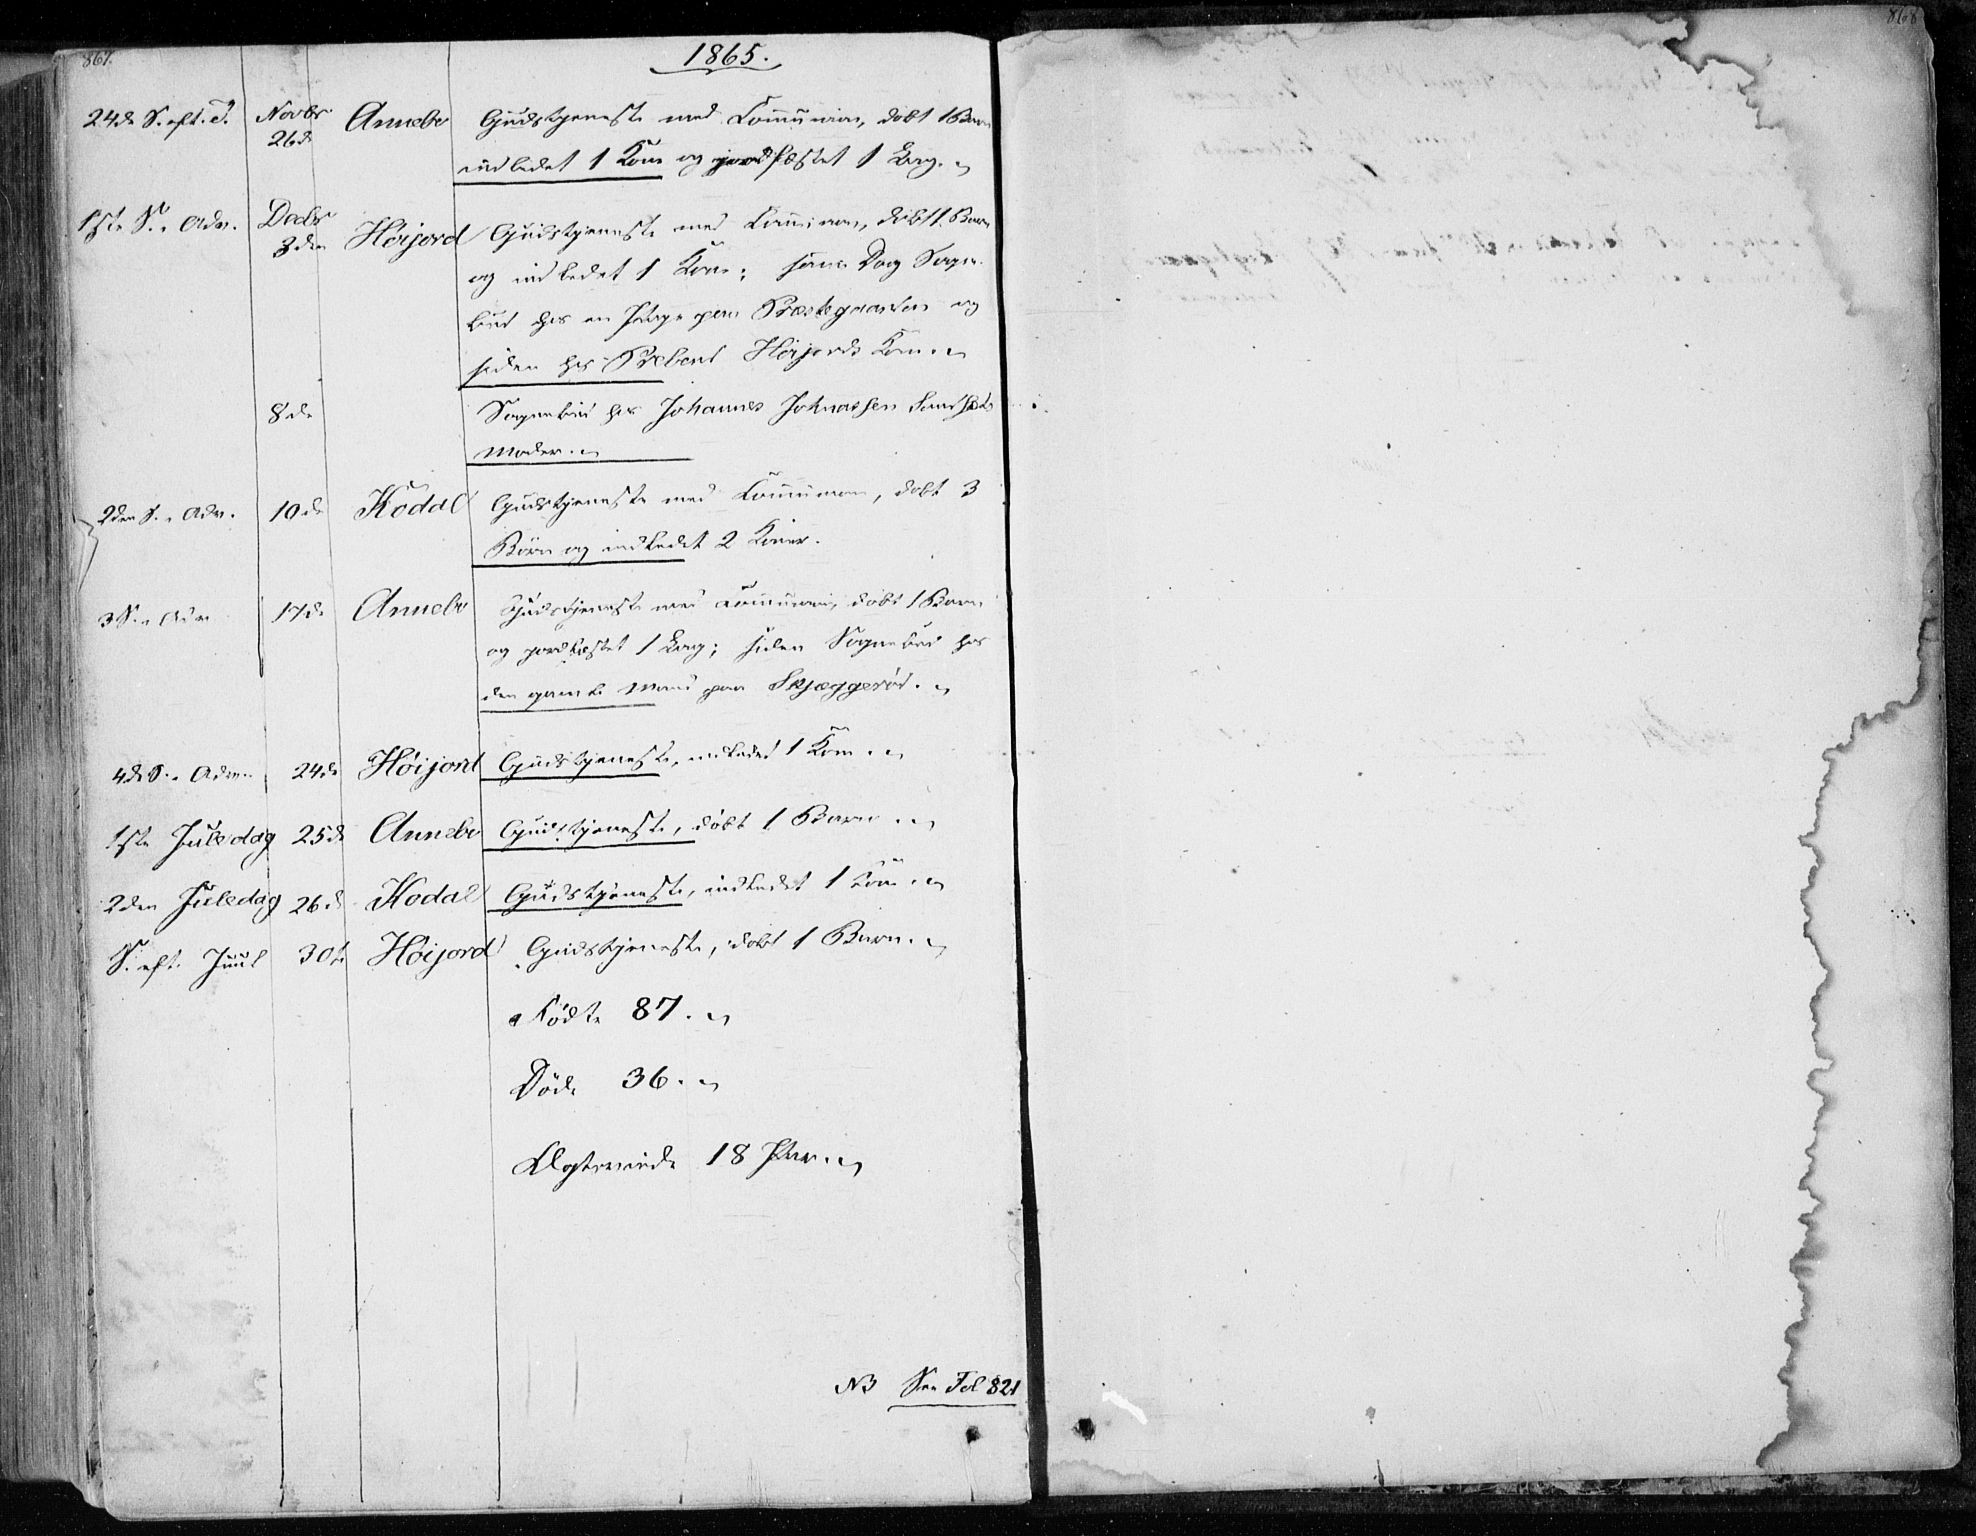 867.
1865.
868
24de S. eft. T. Novbr 26de Annebo Gudstjeneste med Communion, döbt 1 Barn
indledet 1 Kone og jordfæstet 1 Lig.
1ste S. i Adv. Decbr 3den Höijord Gudstjeneste med Communion, döbt 1 Barn
og indledet 1 Kone; samme Dag Sogne-
bud hos en Pige paa Præstegaarden og
siden hos Prebent Höijords Kone.
8de Sognebud hos Johannes Johnassen
Moder.
2den S. i Adv. 10de Kodal Gudstjeneste med Communion, döbt 3
Börn og indledet 2 Koner.
3 S. i Adv. 17de Annebo Gudstjeneste med Communion, döbt 1 Barn
og jordfæstet 1 Lig; siden Sognebud hos
den gamle Mand paa Skjæggeröd.
4de S. i Adv. 24de Höijord Gudstjeneste, indledet 1 Kone.
1ste Juledag 25de Annebo Gudstjeneste, döbt 1 Barn
2den Juledag 26de Kodal Gudstjeneste, indledet 1 Kone.
S. eft. Juul 30te Höijord Gudstjeneste, döbt 1 Barn.
Födte 87.
Döde 36.
Ægteviede 18 Par.
NB See Fol 821